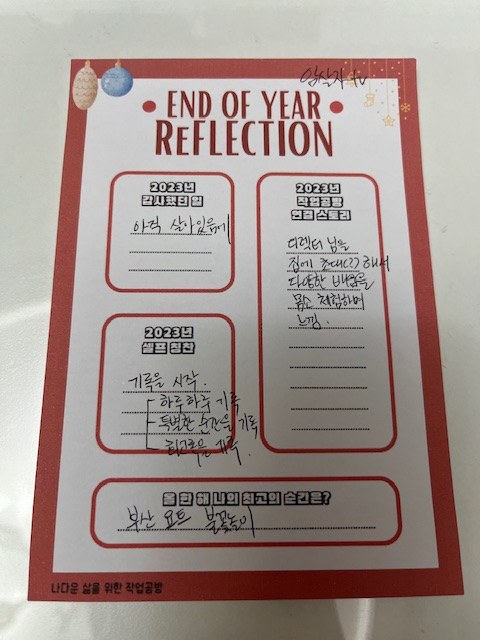 END OF YEAR
REFLECTION
2023년
감사했던 일
아직 살아있음에
2023년
작업공방
연결 스토리
디렉터님을
집에 초대(??)해서
다양한 배움을
몸소 체험하며
느낌.
2023년
셀프 칭찬
기록을 시작.
하루하루 기록
특별한 순간을 기록
회고록을 기록.
올 한 해 나의 최고의 순간은?
부산 요트 불꽃놀이
나다운 삶을 위한 작업공방